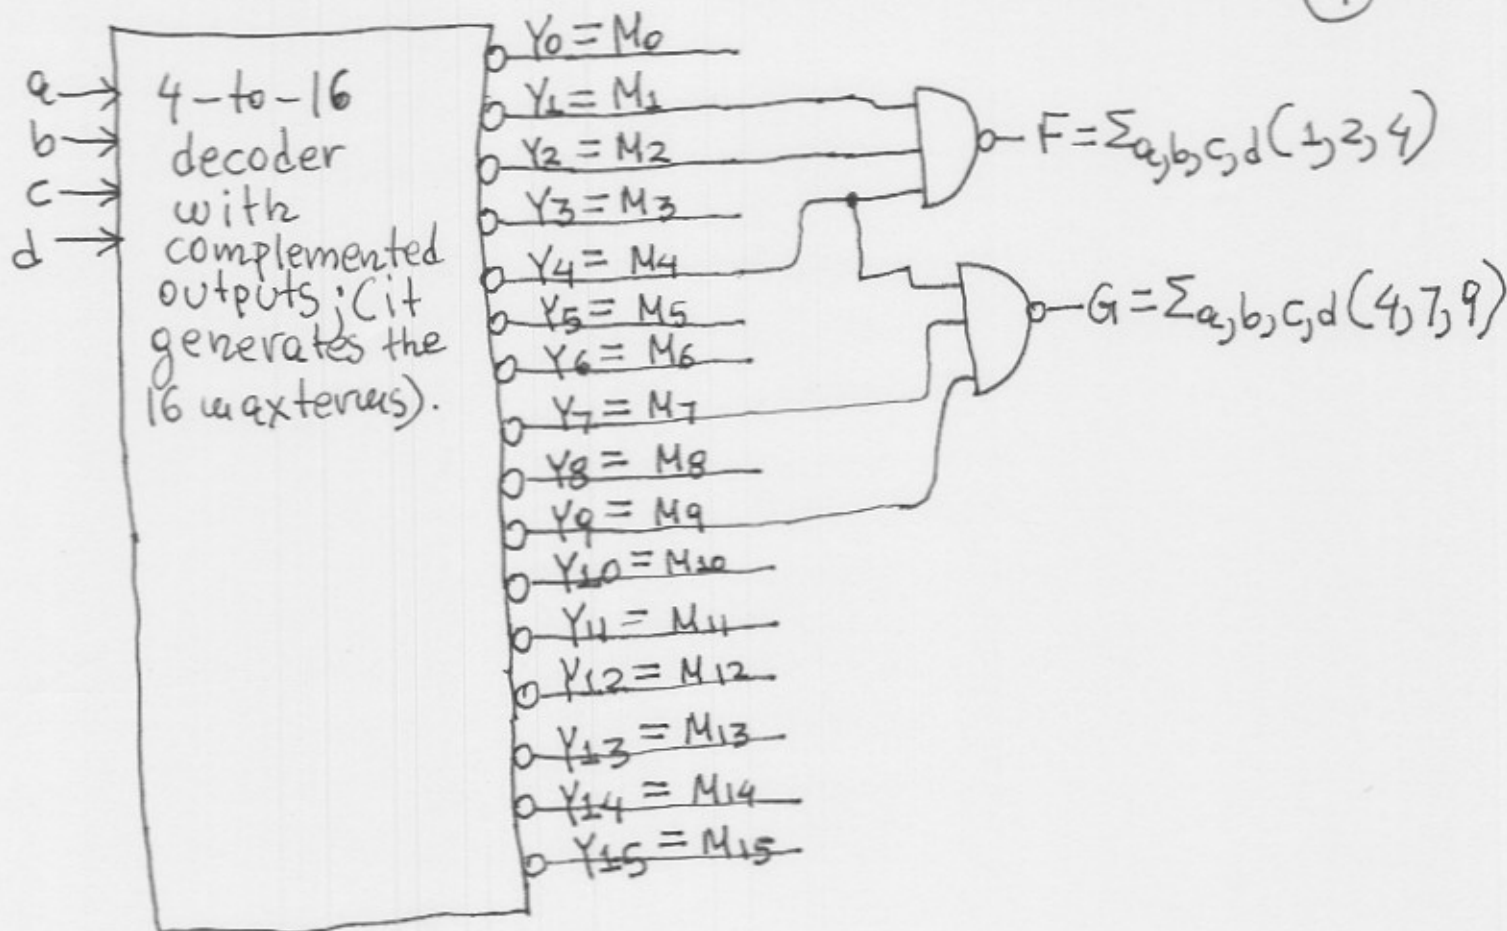 a
b
c
d
4-to-16
decoder
with
complemented
outputs; (it
generates the
16 maxterms).
Y0 = M0
Y1 = M1
Y2 = M2
Y3 = M3
Y4 = M4
Y5 = M5
Y6 = M6
Y7 = M7
Y8 = M8
Y9 = M9
Y10 = M10
Y11 = M11
Y12 = M12
Y13 = M13
Y14 = M14
Y15 = M15
F = Σa,b,c,d(1,2,4)
G = Σa,b,c,d(4,7,9)